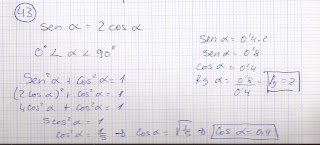 43
Sen α = 2 cos α
0° < α < 90°
Sen² α + Cos² α = 1
(2 cos α)² + Cos² α = 1
4 cos² α + Cos² α = 1
5 cos² α = 1
Cos² α = 1/5 → Cos α = √1/5 → Cos α = 0,4
Sen α = 0'4 · 2
Sen α = 0'8
Cos α = 0'4
tg α = 0'8/0'4 = tg = 2